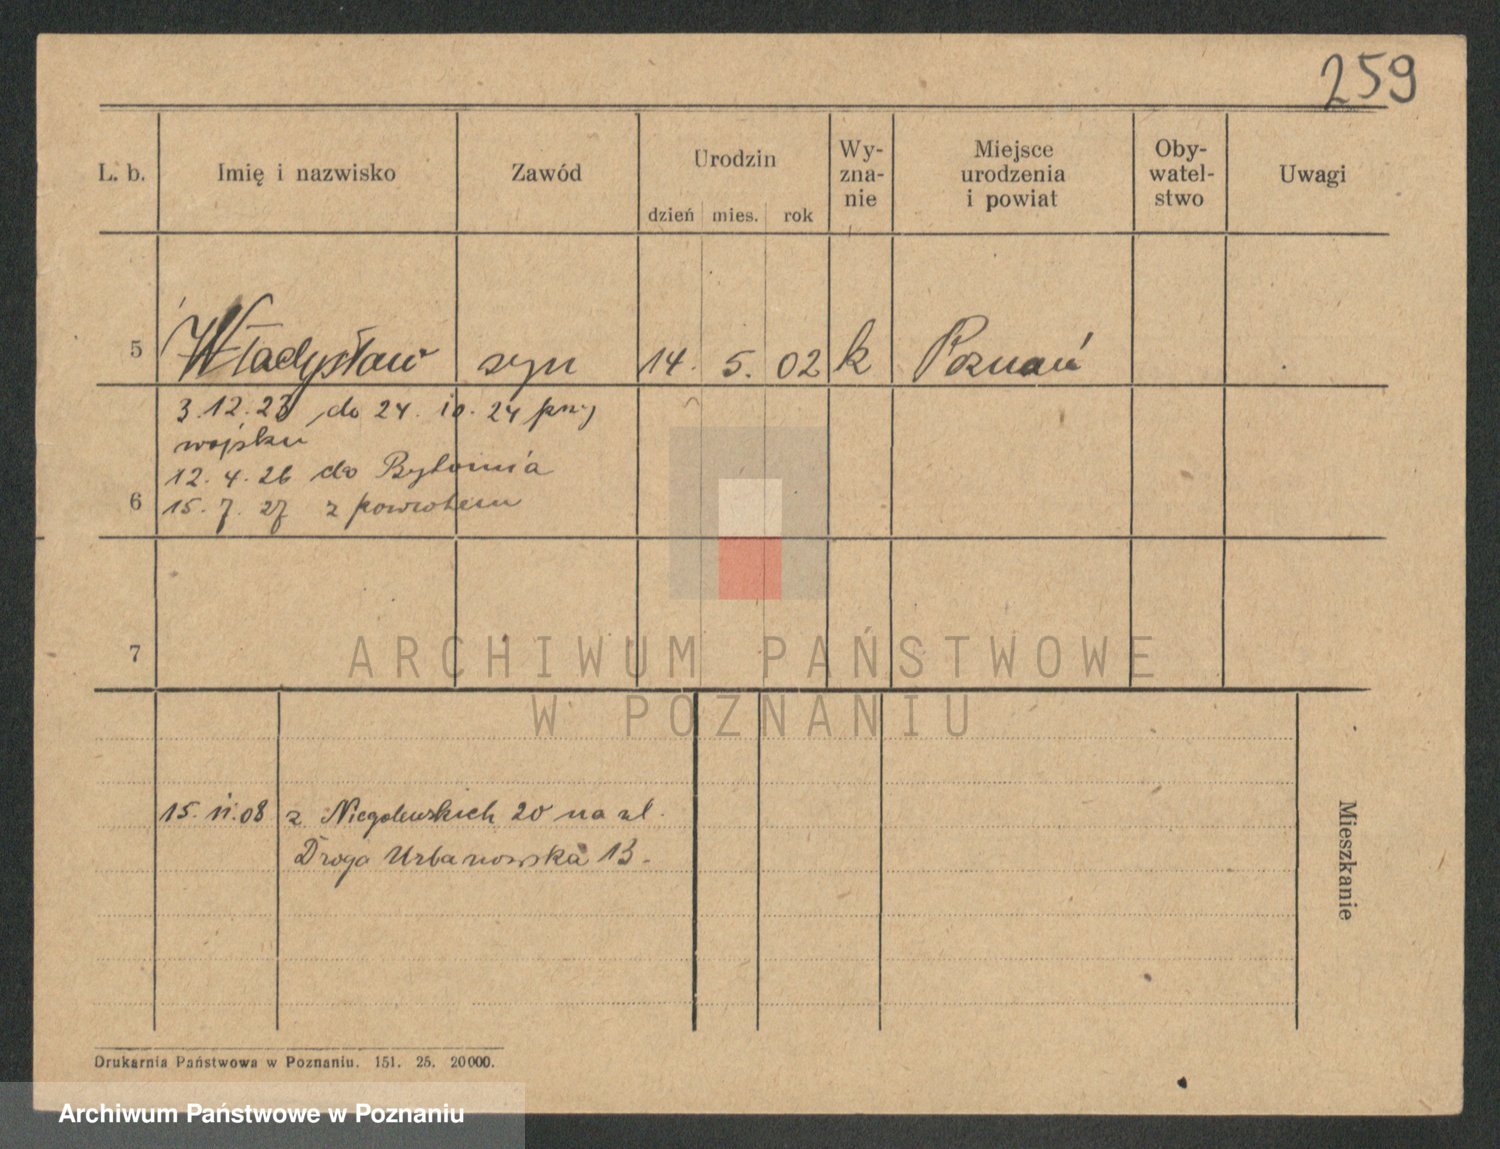 259
L. b. Imię i nazwisko Zawód Urodzin dzień mies. rok Wy-zna-nie Miejsce urodzenia i powiat Oby-watel-stwo Uwagi
5 Władysław syn 14. 5. 02 k Poznań
3.12.23 do 24. 10. 24 przy
wojsku
12. 4. 26 do Bytomia
6 15. 7. 27 z powrotem
7
ARCHIWUM PAŃSTWOWE
W POZNANIU
15. 11. 08 z Niegolewskich 20 na ul.
Droga Urbanowska 13.
Mieszkanie
Drukarnia Państwowa w Poznaniu. 151. 25. 20000.
Archiwum Państwowe w Poznaniu